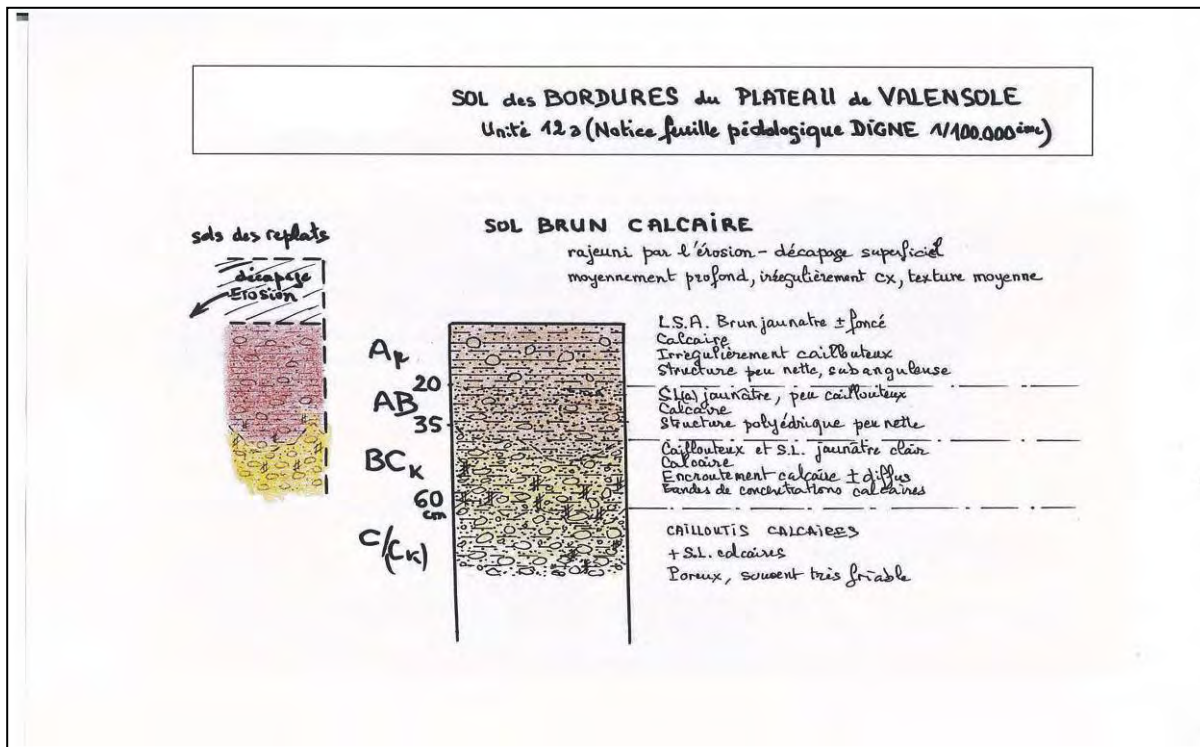 SOL des BORDURES du PLATEAU de VALENSOLE
Unité 12a (Notice feuille pédologique DIGNE 1/100.000ème)
sols des replats
décapage
Erosion
SOL BRUN CALCAIRE
rajeuni par l'érosion - décapage superficiel
moyennement profond, irrégulièrement cx, texture moyenne
Ap
20
AB
35
BCk
60
cm
C/(Ck)
L.S.A. Brun jaunatre ± foncé
Calcaire
Irrégulièrement caillouteux
Structure peu nette, subanguleuse
SL(a) jaunâtre, peu caillouteux
Calcaire
Structure polyédrique peu nette
Caillouteux et S.L. jaunâtre clair
Calcaire
Encroutement calcaire ± diffus
Bandes de concentrations calcaires
CAILLOUTIS CALCAIRES
+ S.L. calcaires
Poreux, souvent très friable